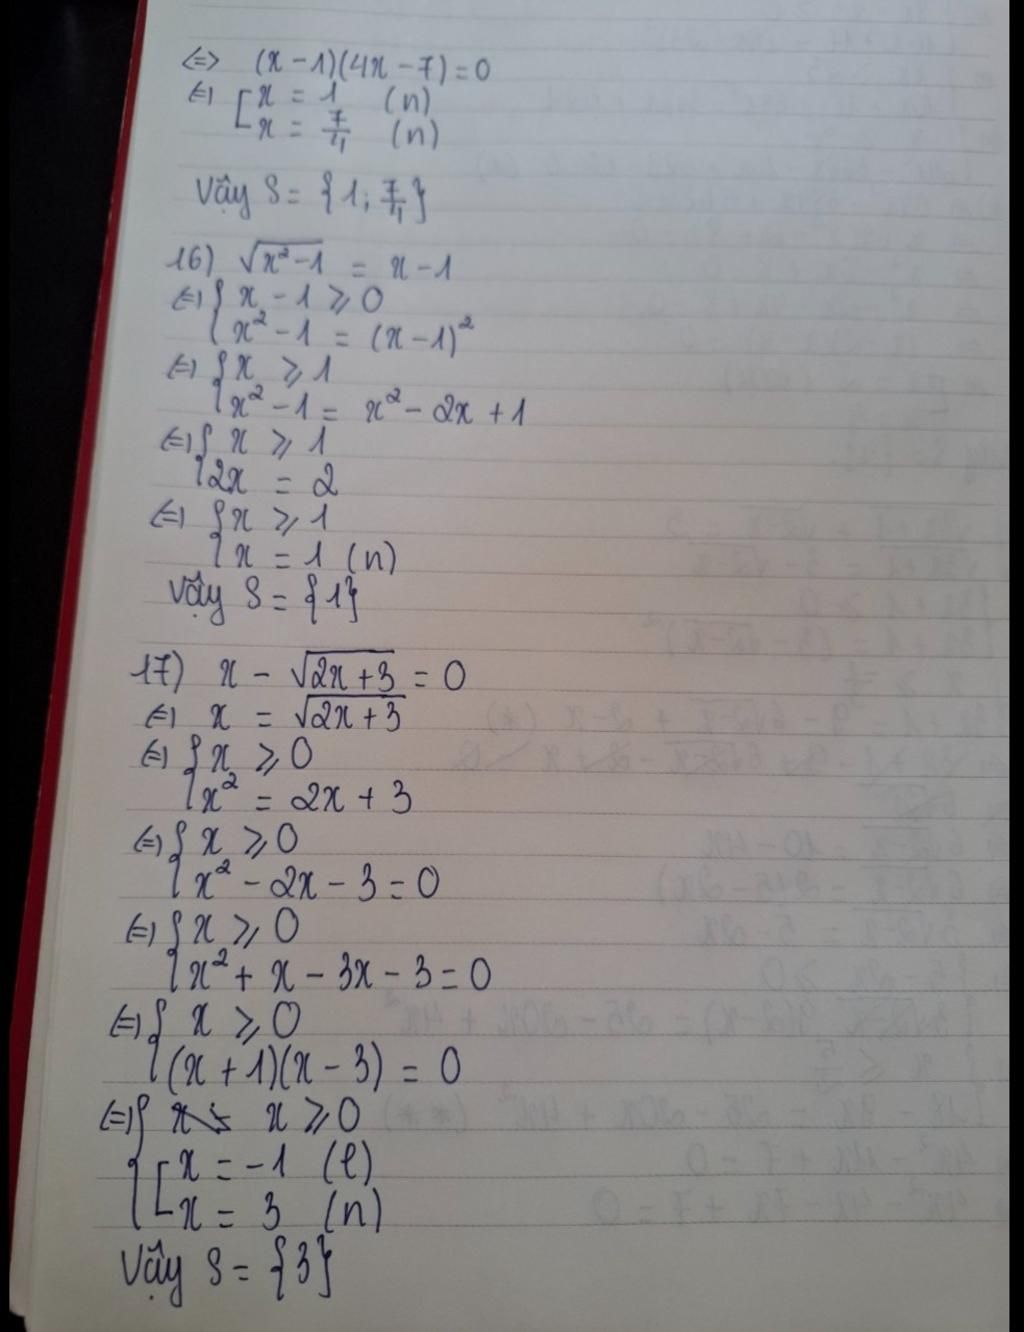 <=> (x - 1)(4x - 7) = 0
<=> [ x = 1 (n)
x = 7/4 (n)
Vậy S = {1; 7/4}
16) √(x² - 1) = x - 1
<=> { x - 1 ⩾ 0
x² - 1 = (x - 1)²
<=> { x ⩾ 1
x² - 1 = x² - 2x + 1
<=> { x ⩾ 1
2x = 2
<=> { x ⩾ 1
x = 1 (n)
Vậy S = {1}
17) x - √(2x + 3) = 0
<=> x = √(2x + 3)
<=> { x ⩾ 0
x² = 2x + 3
<=> { x ⩾ 0
x² - 2x - 3 = 0
<=> { x ⩾ 0
x² + x - 3x - 3 = 0
<=> { x ⩾ 0
(x + 1)(x - 3) = 0
<=> { x ⩾ 0
[ x = -1 (l)
x = 3 (n)
Vậy S = {3}